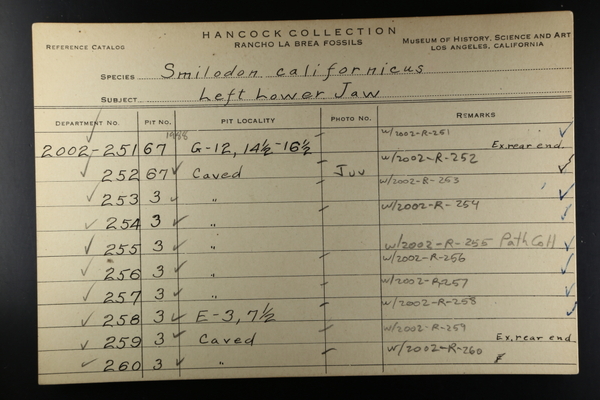 HANCOCK COLLECTION
REFERENCE CATALOG RANCHO LA BREA FOSSILS MUSEUM OF HISTORY, SCIENCE AND ART
LOS ANGELES, CALIFORNIA
SPECIES Smilodon californicus
SUBJECT Left Lower Jaw
DEPARTMENT NO. PIT NO. PIT LOCALITY PHOTO NO. REMARKS
2002-251 67 G-12, 14½-16½ w/2002-R-251 Ex. rear end.
252 67 Caved Juv w/2002-R-252
253 3 " w/2002-R-253
254 3 " w/2002-R-254
255 3 " w/2002-R-255 Path. Coll
256 3 " w/2002-R-256
257 3 " w/2002-R-257
258 3 E-3, 7½ w/2002-R-258
259 3 Caved w/2002-R-259 Ex. rear end
260 3 " w/2002-R-260